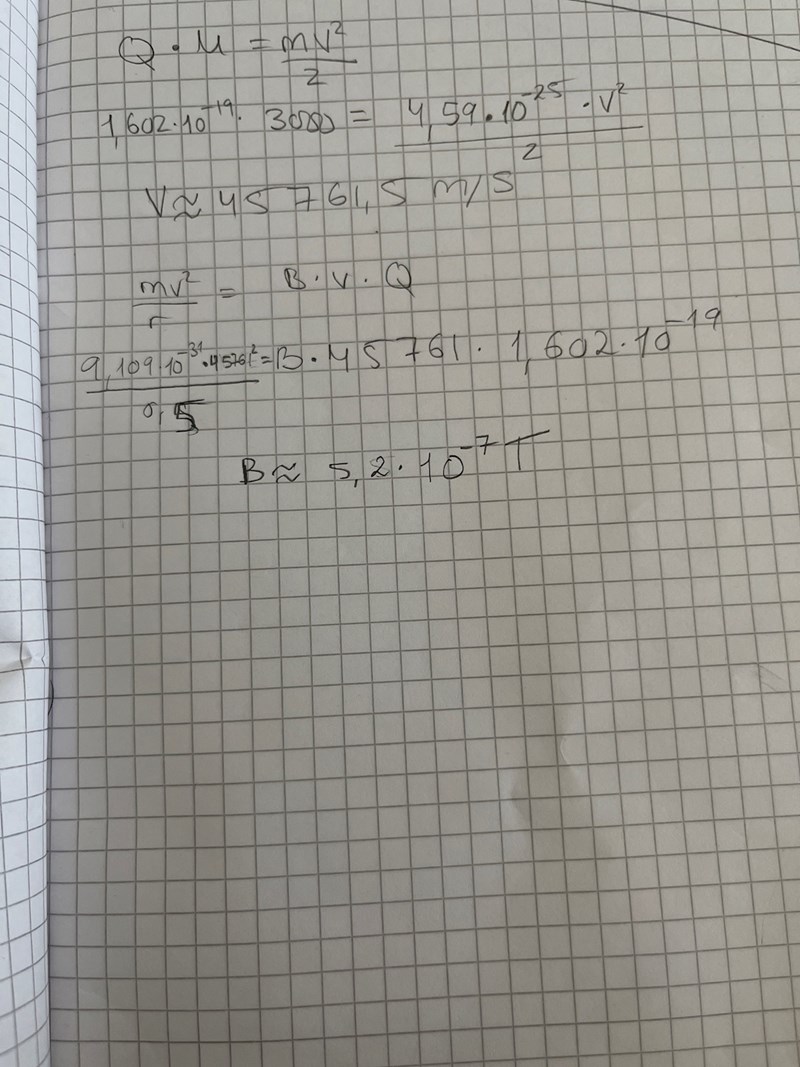 Q · U = mv²/2
1,602·10⁻¹⁹· 3000 = 4,59·10⁻²⁵ · v²/2
V ≈ 45 761,5 m/s
mv²/r = B · v · Q
9,109·10⁻³¹·45761²/0,5 = B · 45 761 · 1,602·10⁻¹⁹
B ≈ 5,2 · 10⁻⁷ T